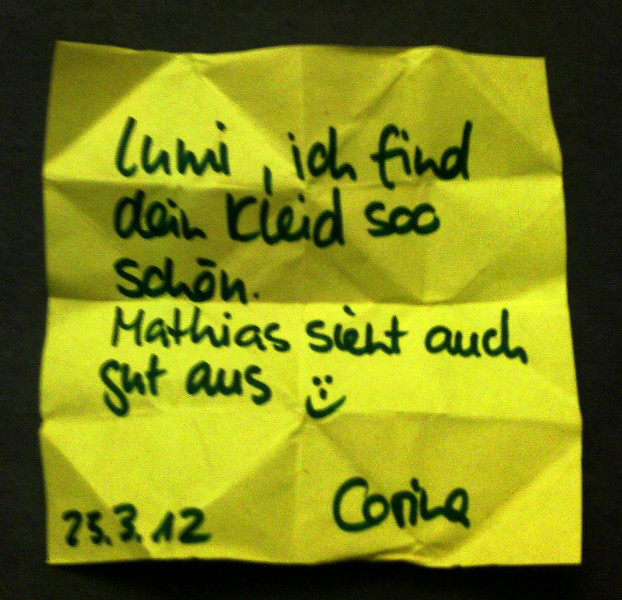 Lumi, ich find
dein Kleid soo
schön.
Mathias sieht auch
gut aus :)
Corina
25.3.12